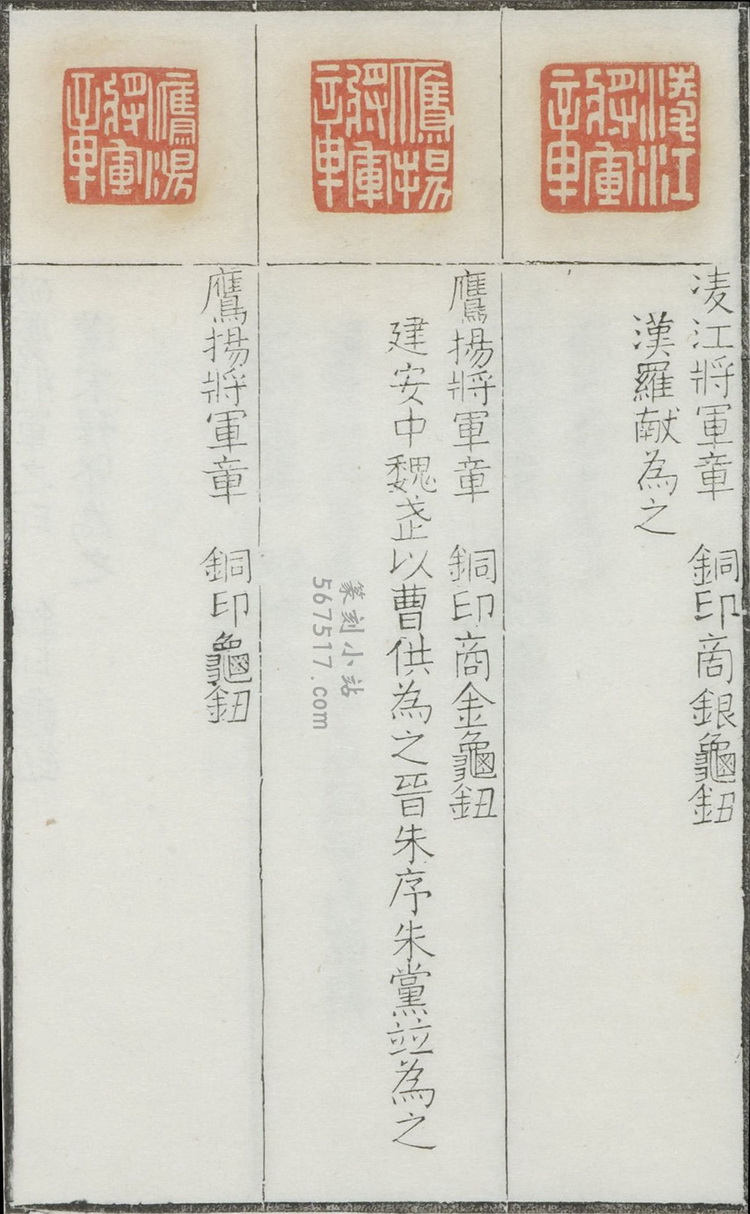 淩江
將軍
章
凌江將軍章　銅印商銀龜鈕
漢羅献為之
鷹揚
將軍
章
鷹揚將軍章　銅印商金龜鈕
建安中魏武以曹供為之晉朱序朱黨竝為之
鷹揚
將軍
章
鷹揚將軍章　銅印龜鈕
篆刻小站
567517.com